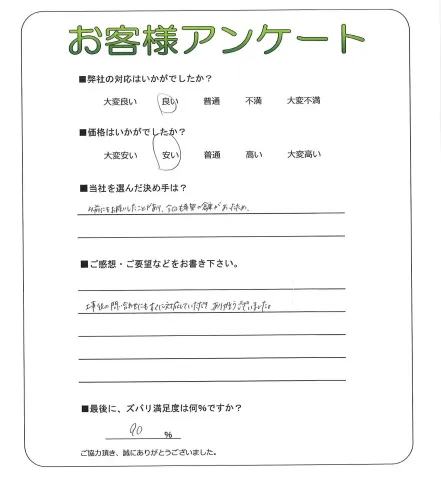 お客様アンケート
■弊社の対応はいかがでしたか？
大変良い 良い 普通 不満 大変不満
■価格はいかがでしたか？
大変安い 安い 普通 高い 大変高い
■当社を選んだ決め手は？
以前にもお願いしたことがあり、今回も希望の金額があったため。
■ご感想・ご要望などをお書き下さい。
工事後の問い合わせにもすぐに対応していただき ありがとうございました。
■最後に、ズバリ満足度は何%ですか？
90 %
ご協力頂き、誠にありがとうございました。